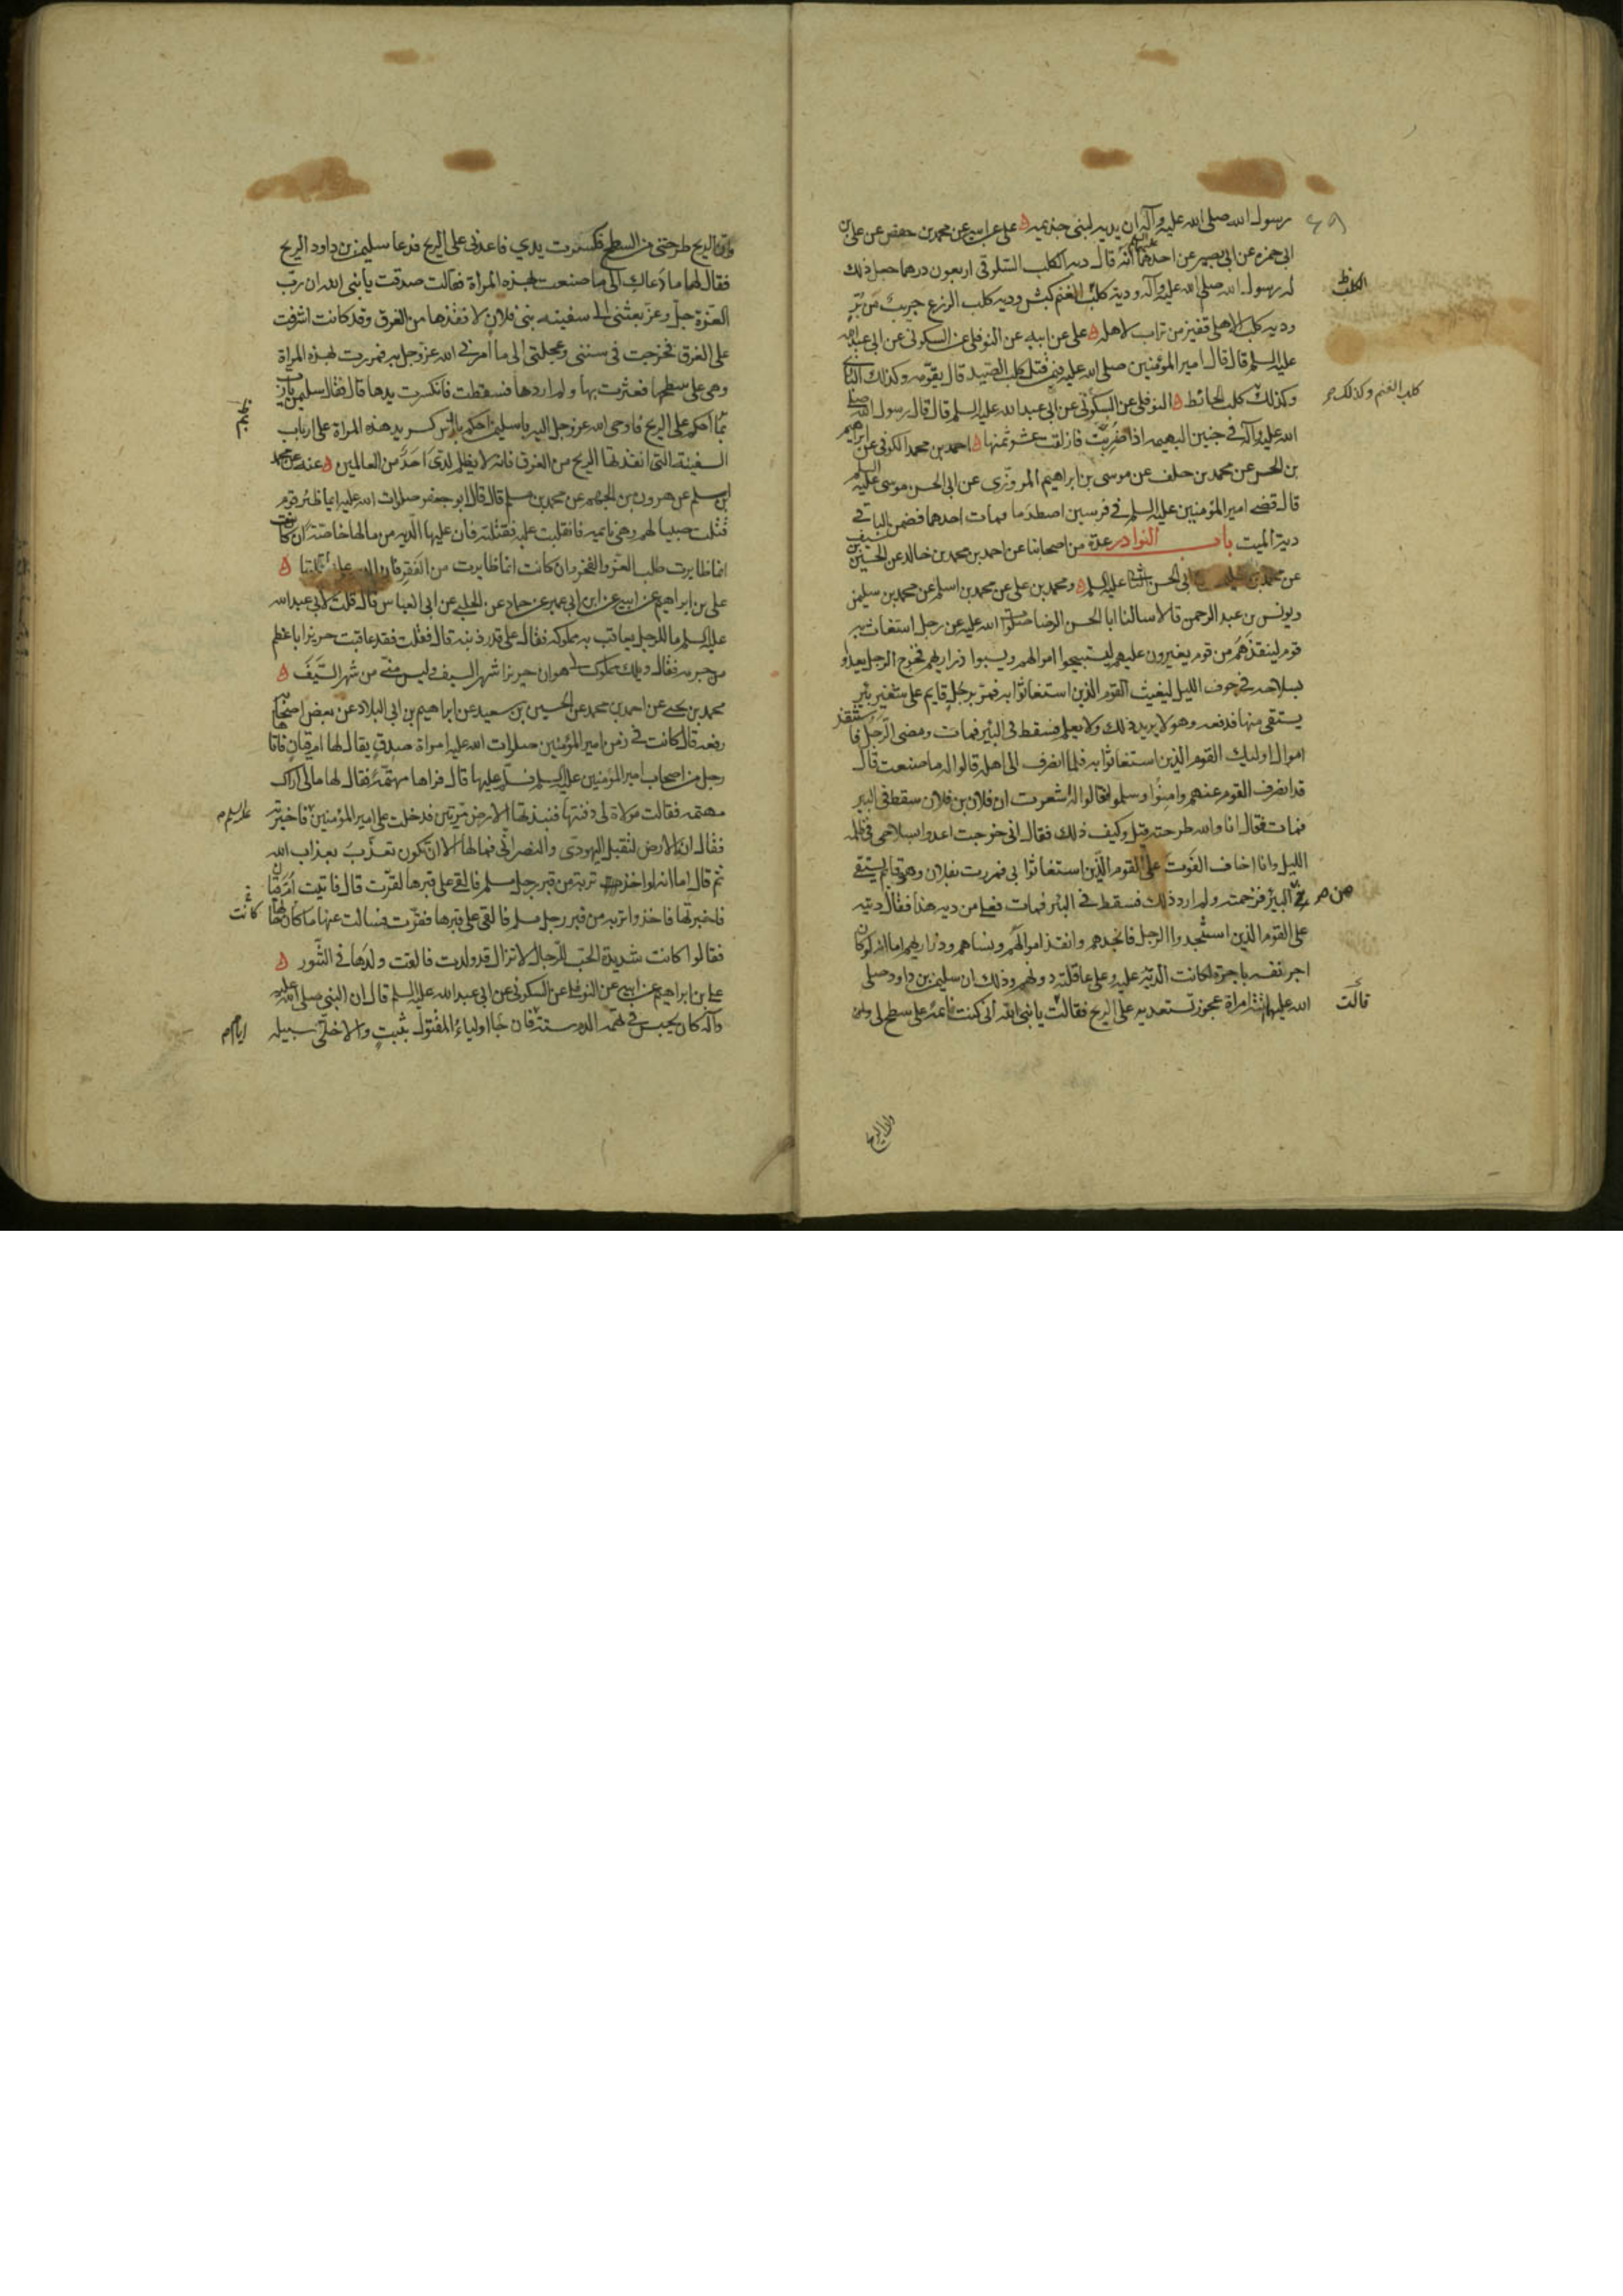 رسول الله صلى الله عليه وآله ان يديه لبنى جذيمه ه على عن ابيه عن محمد بن حفص عن على بن
ابى حمزه عن ابى بصير عن احدهما عليهما السلم انه قال ديه الكلب السلوقى اربعون درهما جعل ذلك
له رسول الله صلى الله عليه وآله ودية كلب الغنم كبش وديه كلب الزرع جريب من بر
وديه كلب الاهلى قفيز من تراب لاهله ه على عن ابيه عن النوفلى عن السكونى عن ابى عبد الله
عليه السلم قال قال امير المؤمنين صلى الله عليه فيمن قتل كلب الصيد قال يقومه وكذلك البازى
وكذلك كلب الحائط ه النوفلى عن السكونى عن ابى عبد الله عليه السلم قال قال رسول الله صلى
الله عليه وآله فى جنين البهيمه اذا ضربت فازلقت عشر ثمنها ه احمد بن محمد الكوفى عن ابراهيم
بن الحسن عن محمد بن خلف عن موسى بن ابراهيم المروزى عن ابى الحسن موسى عليه السلم
قال قضى امير المؤمنين عليه السلم فى فرسين اصطدما فمات احدهما فضمن الباقى
دية الميت باب النوادر عدة من اصحابنا عن احمد بن محمد بن خالد عن الحسين بن سيف
عن محمد بن سليمن عن ابى الحسن الثانى عليه السلم ه ومحمد بن على عن محمد بن اسلم عن محمد بن سليمن
ويونس بن عبد الرحمن قالا سالنا ابا الحسن الرضا صلوات الله عليه عن رجل استغاث به
قوم لينقذهم من قوم يغيرون عليهم ليستبيحوا اموالهم ويسبوا ذراريهم فخرج الرجل يعدو
بسلاحه فى جوف الليل ليغيث القوم الذين استغاثوا به فمر برجل قايم على شفير بئر
يستقى منها فدفعه وهو لا يريد ذلك ولا يعلم فسقط فى البئر فمات ومضى الرجل فاستنقذ
اموال اوليك القوم الذين استغاثوا به فلما انصرف الى اهله قالوا له ما صنعت قال
قد انصرف القوم عنهم وامنوا وسلموا قالوا له اشعرت ان فلان بن فلان سقط فى البير
فمات فقال انا والله طرحته قيل وكيف ذلك فقال انى خرجت اعدوا بسلاحى فى ظلمه
الليل وانا اخاف الفوت على القوم الذين استغاثوا بى فمررت بفلان وهو قايم يستقى
فى البئر فزحمته ولم ارد ذلك فسقط فى البئر فمات فعلى من ديه هذا فقال ديته
على القوم الذين استنجدوا الرجل فانجدهم وانقذ اموالهم ونساهم وذراريهم اما انه لو كان
اجر نفسه باجرة لكانت الدية عليه وعلى عاقلته دونهم وذلك ان سليمن بن داود صلى
الله عليهما اتته امراة عجوز تستعديه على الريح فقالت يا نبى الله انى كنت قائمة على سطح لى وان
الكلب
كلب الغنم وكذلك
من
قالت
وان الريح
وان الريح طرحتنى من السطح فكسرت يدي فاعدنى على الريح فدعا سليمن بن داود الريح
فقال لها ما دعاك الى ما صنعت بهذه المراة فقالت صدقت يا نبى الله ان رب
العزة جل وعز بعثنى الى سفينه بنى فلان لانقذها من الغرق وقد كانت اشرفت
على الغرق فخرجت فى سننى وعجلتى الى ما امرنى الله عز وجل به فمررت بهذه المراة
وهى على سطحها فعثرت بها ولم اردها فسقطت فانكسرت يدها قال فقال سليمن يا رب
بما احكم على الريح فاوحى الله عز وجل اليه يا سليمن احكم بارش كسر يد هذه المراة على ارباب
السفينة التى انقذتها الريح من الغرق فانه لا يظلم لدى احد من العالمين ه عنه عن محمد
بن اسلم عن هرون بن الجهم عن محمد بن مسلم قال قال ابو جعفر صلوات الله عليه ايما ظئر قوم
قتلت صبيا لهم وهى نايمه فانقلبت عليه فقتلته فان عليها الديه من مالها خاصة ان كانت
انما ظايرت طلب العز والفخر وان كانت انما ظايرت من الفقر فان الديه على عاقلتها ه
على بن ابراهيم عن ابيه عن ابن ابى عمير عن حماد عن الحلبى عن ابى العباس قال قلت لابى عبد الله
عليه السلم ما للرجل يعاقب به مملوكه فقال على قدر ذنبه قال فقلت فقد عاقبت حريزا باعظم
من جرمه فقال ويلك مملوك لى هو ان حريزا شهر السيف وليس منى من شهر السيف ه
محمد بن يحيى عن احمد بن محمد عن الحسين بن سعيد عن ابراهيم بن ابى البلاد عن بعض اصحابه
رفعه قال كانت فى زمن امير المؤمنين صلوات الله عليه امراة صدق يقال لها ام قيان فاتاها
رجل من اصحاب امير المؤمنين عليه السلم فسلم عليها قال فراها مهتمة فقال لها مالى اراك
مهتمه فقالت مولاة لى دفنتها فنبذتها الارض مرتين فدخلت على امير المؤمنين فاخبرته
فقال ان الارض لتقبل اليهودى والنصرانى فما لها الا ان تكون تعذب بعذاب الله
ثم قال اما انه لو اخذت تربة من قبر رجل مسلم فالقى على قبرها لقرت قال فاتيت ام قيان
فاخبرتها فاخذوا تربه من قبر رجل مسلم فالقى على قبرها فقرت فسالت عنها ما كان لها
فقالوا كانت شديدة الحب للرجال لا تزال قد ولدت فالقت ولدها فى التنور ه
على بن ابراهيم عن ابيه عن النوفلى عن السكونى عن ابى عبد الله عليه السلم قال ان النبى صلى الله عليه
وآله كان يحبس فى تهمة الدم ستة فان جا اولياء المقتول بثبت والا خلى سبيله
عليه السلم
كانت
ايام